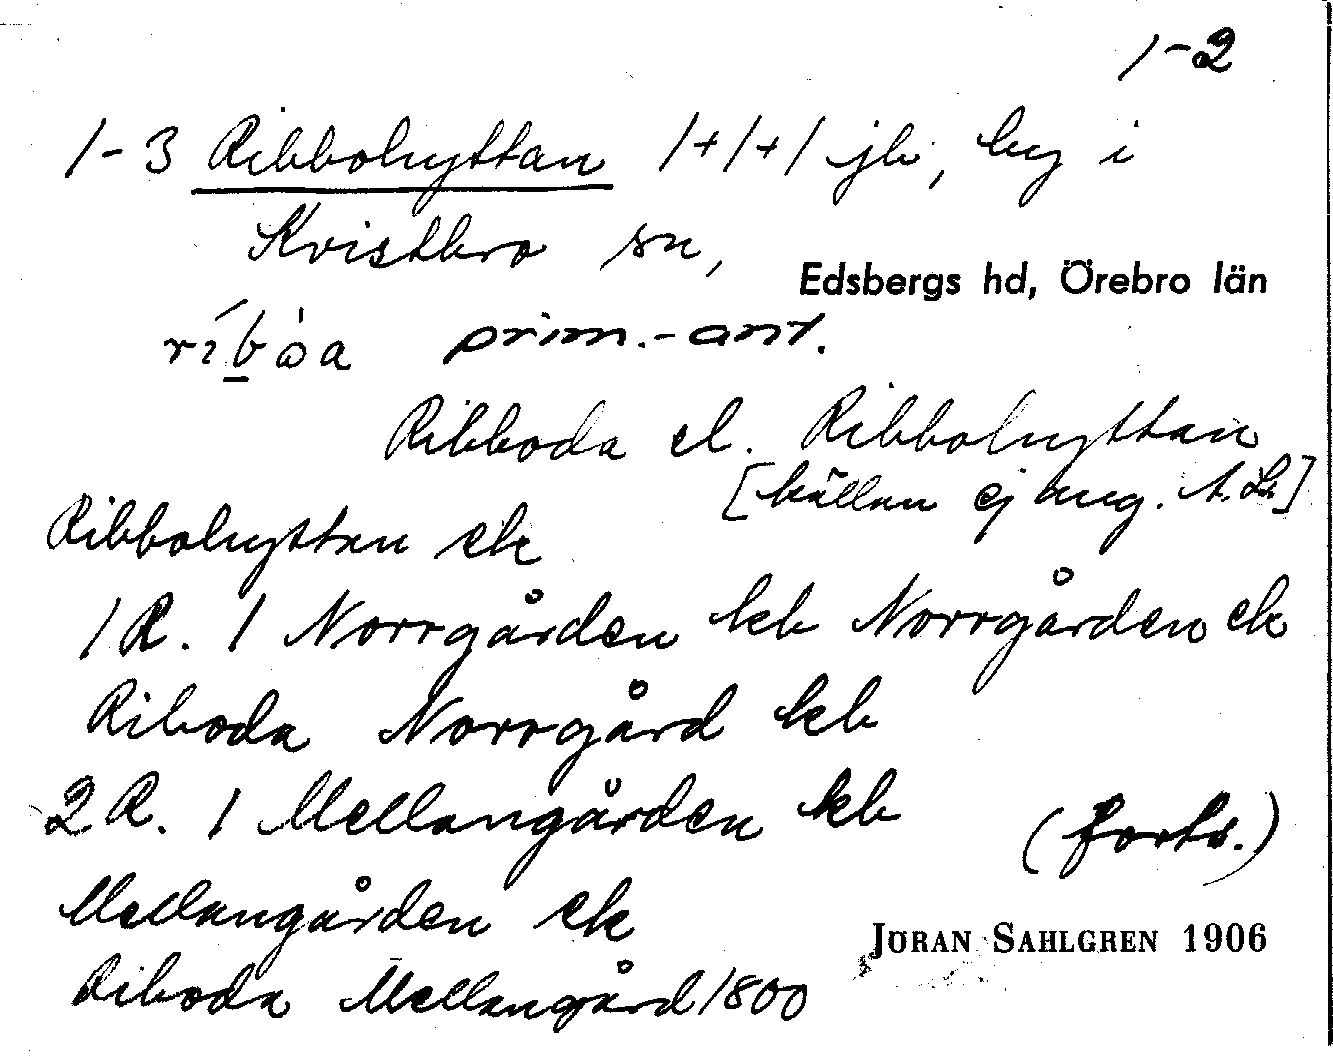 1-2
1-3 Ribbohyttan 1+1+1 jb, by i
Kvistbro sn,
Edsbergs hd, Örebro län
prim.-ant.
Ribboda el. Ribbohyttan
[källan ej ang. A. L.]
Ribbohyttan ek
1 R. 1 Norrgården kb Norrgården ek
Riboda Norrgård kb
2 R. 1 Mellangården kb (forts.)
Mellangården ek
Riboda Mellangård 1800
JÖRAN SAHLGREN 1906